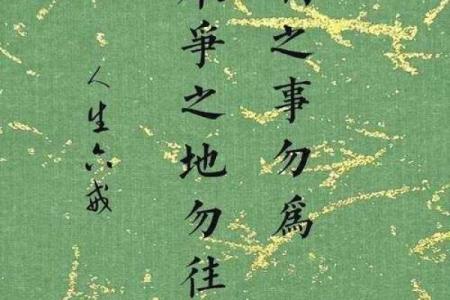 之事勿爲
爭之地勿往
人生六戒